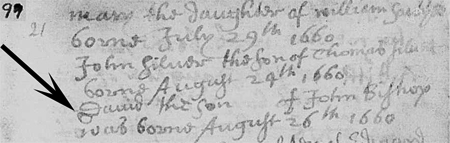 99
21
mary the daughter of william
borne July 29th 1660
John Silver the son of Thomas Silver
borne August 24th 1660
David the son of John Bishop
was borne August 26th 1660